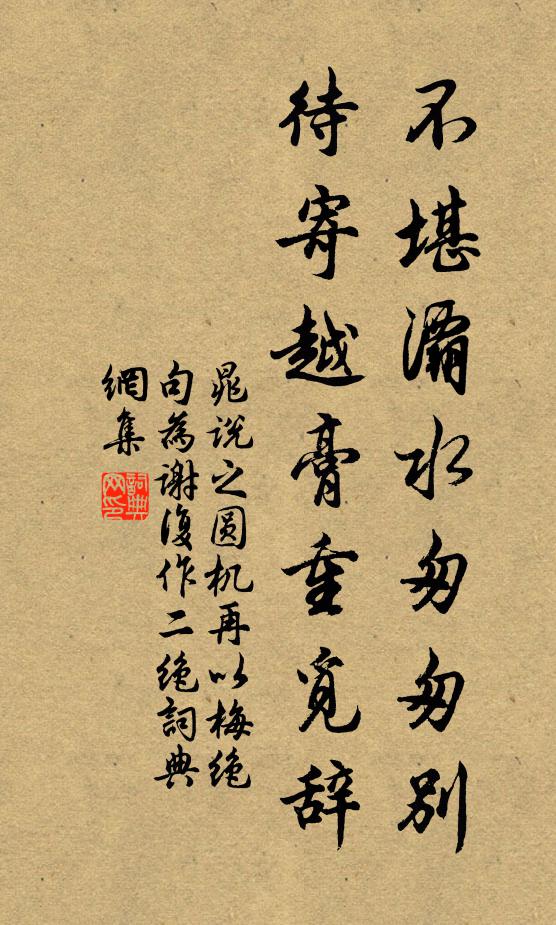 不堪灞水匆匆别
待寄越膏重觅辞
晁说之圆机再以梅绝
句為谢復作二绝詞典
網集
詞典網印